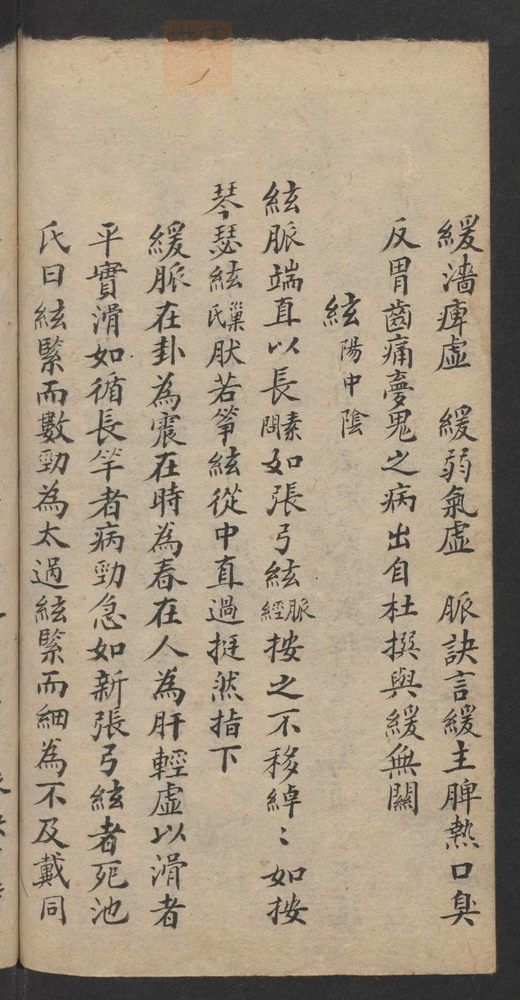 緩濇痺虛　緩弱氣虛　脈訣言緩主脾熱口臭
反胃齒痛夢鬼之病出自杜撰與緩無關
絃陽中陰
絃脈端直以長素問如張弓絃脈經按之不移綽〻如按
琴瑟絃巢氏狀若箏絃從中直過挺然指下
緩脈在卦為震在時為春在人為肝輕虛以滑者
平實滑如循長竿者病勁急如新張弓絃者死池
氏曰絃緊而數勁為太過絃緊而細為不及戴同